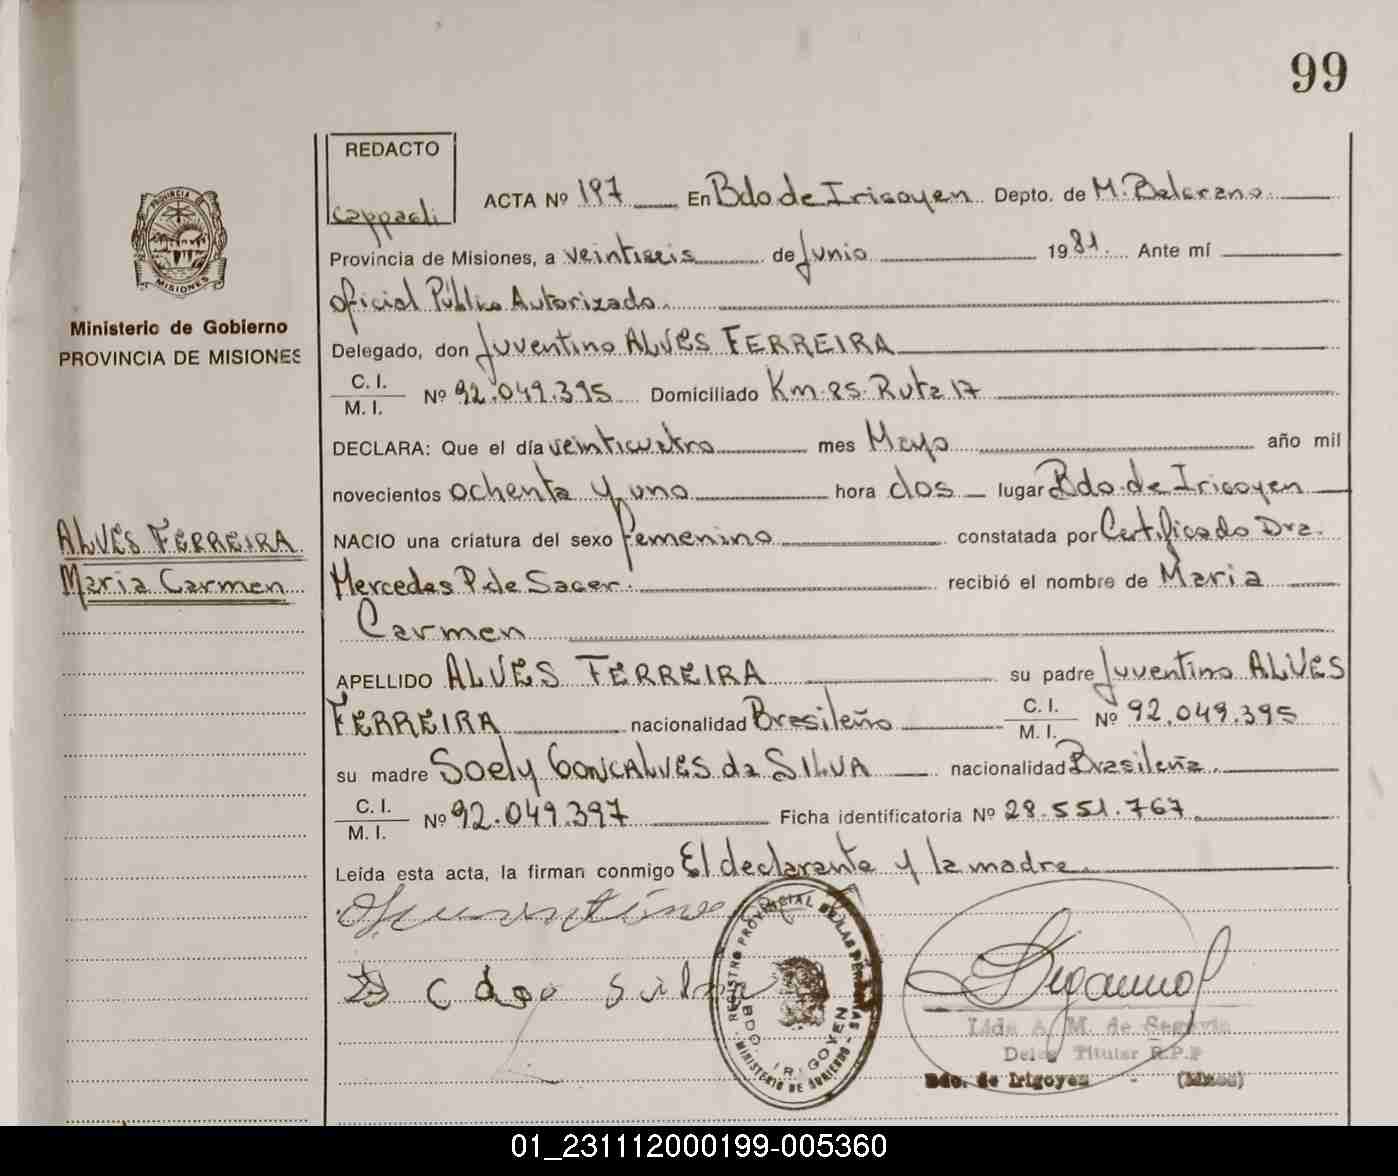 99
REDACTO
Cappaeli
ACTA Nº 197 En Bdo de Irigoyen Depto. de M. Belgrano
Provincia de Misiones, a veintiseis de Junio 1981. Ante mí
Oficial Público Autorizado.
Delegado, don Juventino ALVES FERREIRA
C. I.
M. I. Nº 92.049.395 Domiciliado Km. 85. Ruta 17
DECLARA: Que el día veinticuatro mes Mayo año mil
novecientos ochenta y uno hora dos lugar Bdo. de Irigoyen
NACIO una criatura del sexo femenino constatada por Certificado Dra.
Mercedes P. de Sacer. recibió el nombre de Maria
Carmen
APELLIDO ALVES FERREIRA su padre Juventino ALVES
FERREIRA nacionalidad Brasileño C. I.
M. I. Nº 92.049.395
su madre Soely GONCALVES da SILVA nacionalidad Brasileña.
C. I.
M. I. Nº 92.049.397 Ficha identificatoria Nº 28.551.767
Leída esta acta, la firman conmigo El declarante y la madre.
PROVINCIA DE MISIONES
Ministerio de Gobierno
PROVINCIA DE MISIONES
ALVES FERREIRA
Maria Carmen
Juventino
Silva
REGISTRO PROVINCIAL DE LAS PERSONAS
BDO. IRIGOYEN
MINISTERIO DE GOBIERNO
Lida A. M. de Segovia
Deleg Titular R.P.P
Bdo. de Irigoyen - (Mnes)
01_231112000199-005360